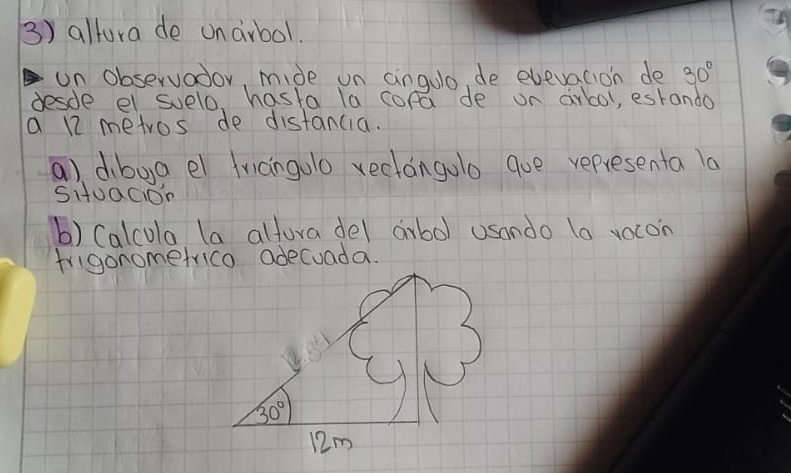 3) altura de un árbol.
▶ un observador mide un ángulo de elevación de 30°
desde el suelo, hasta la copa de un árbol, estando
a 12 metros de distancia.
a) dibuja el triángulo rectángulo que representa la
situación
b) Calcula la altura del árbol usando la razón
trigonometrica adecuada.
30°
12m